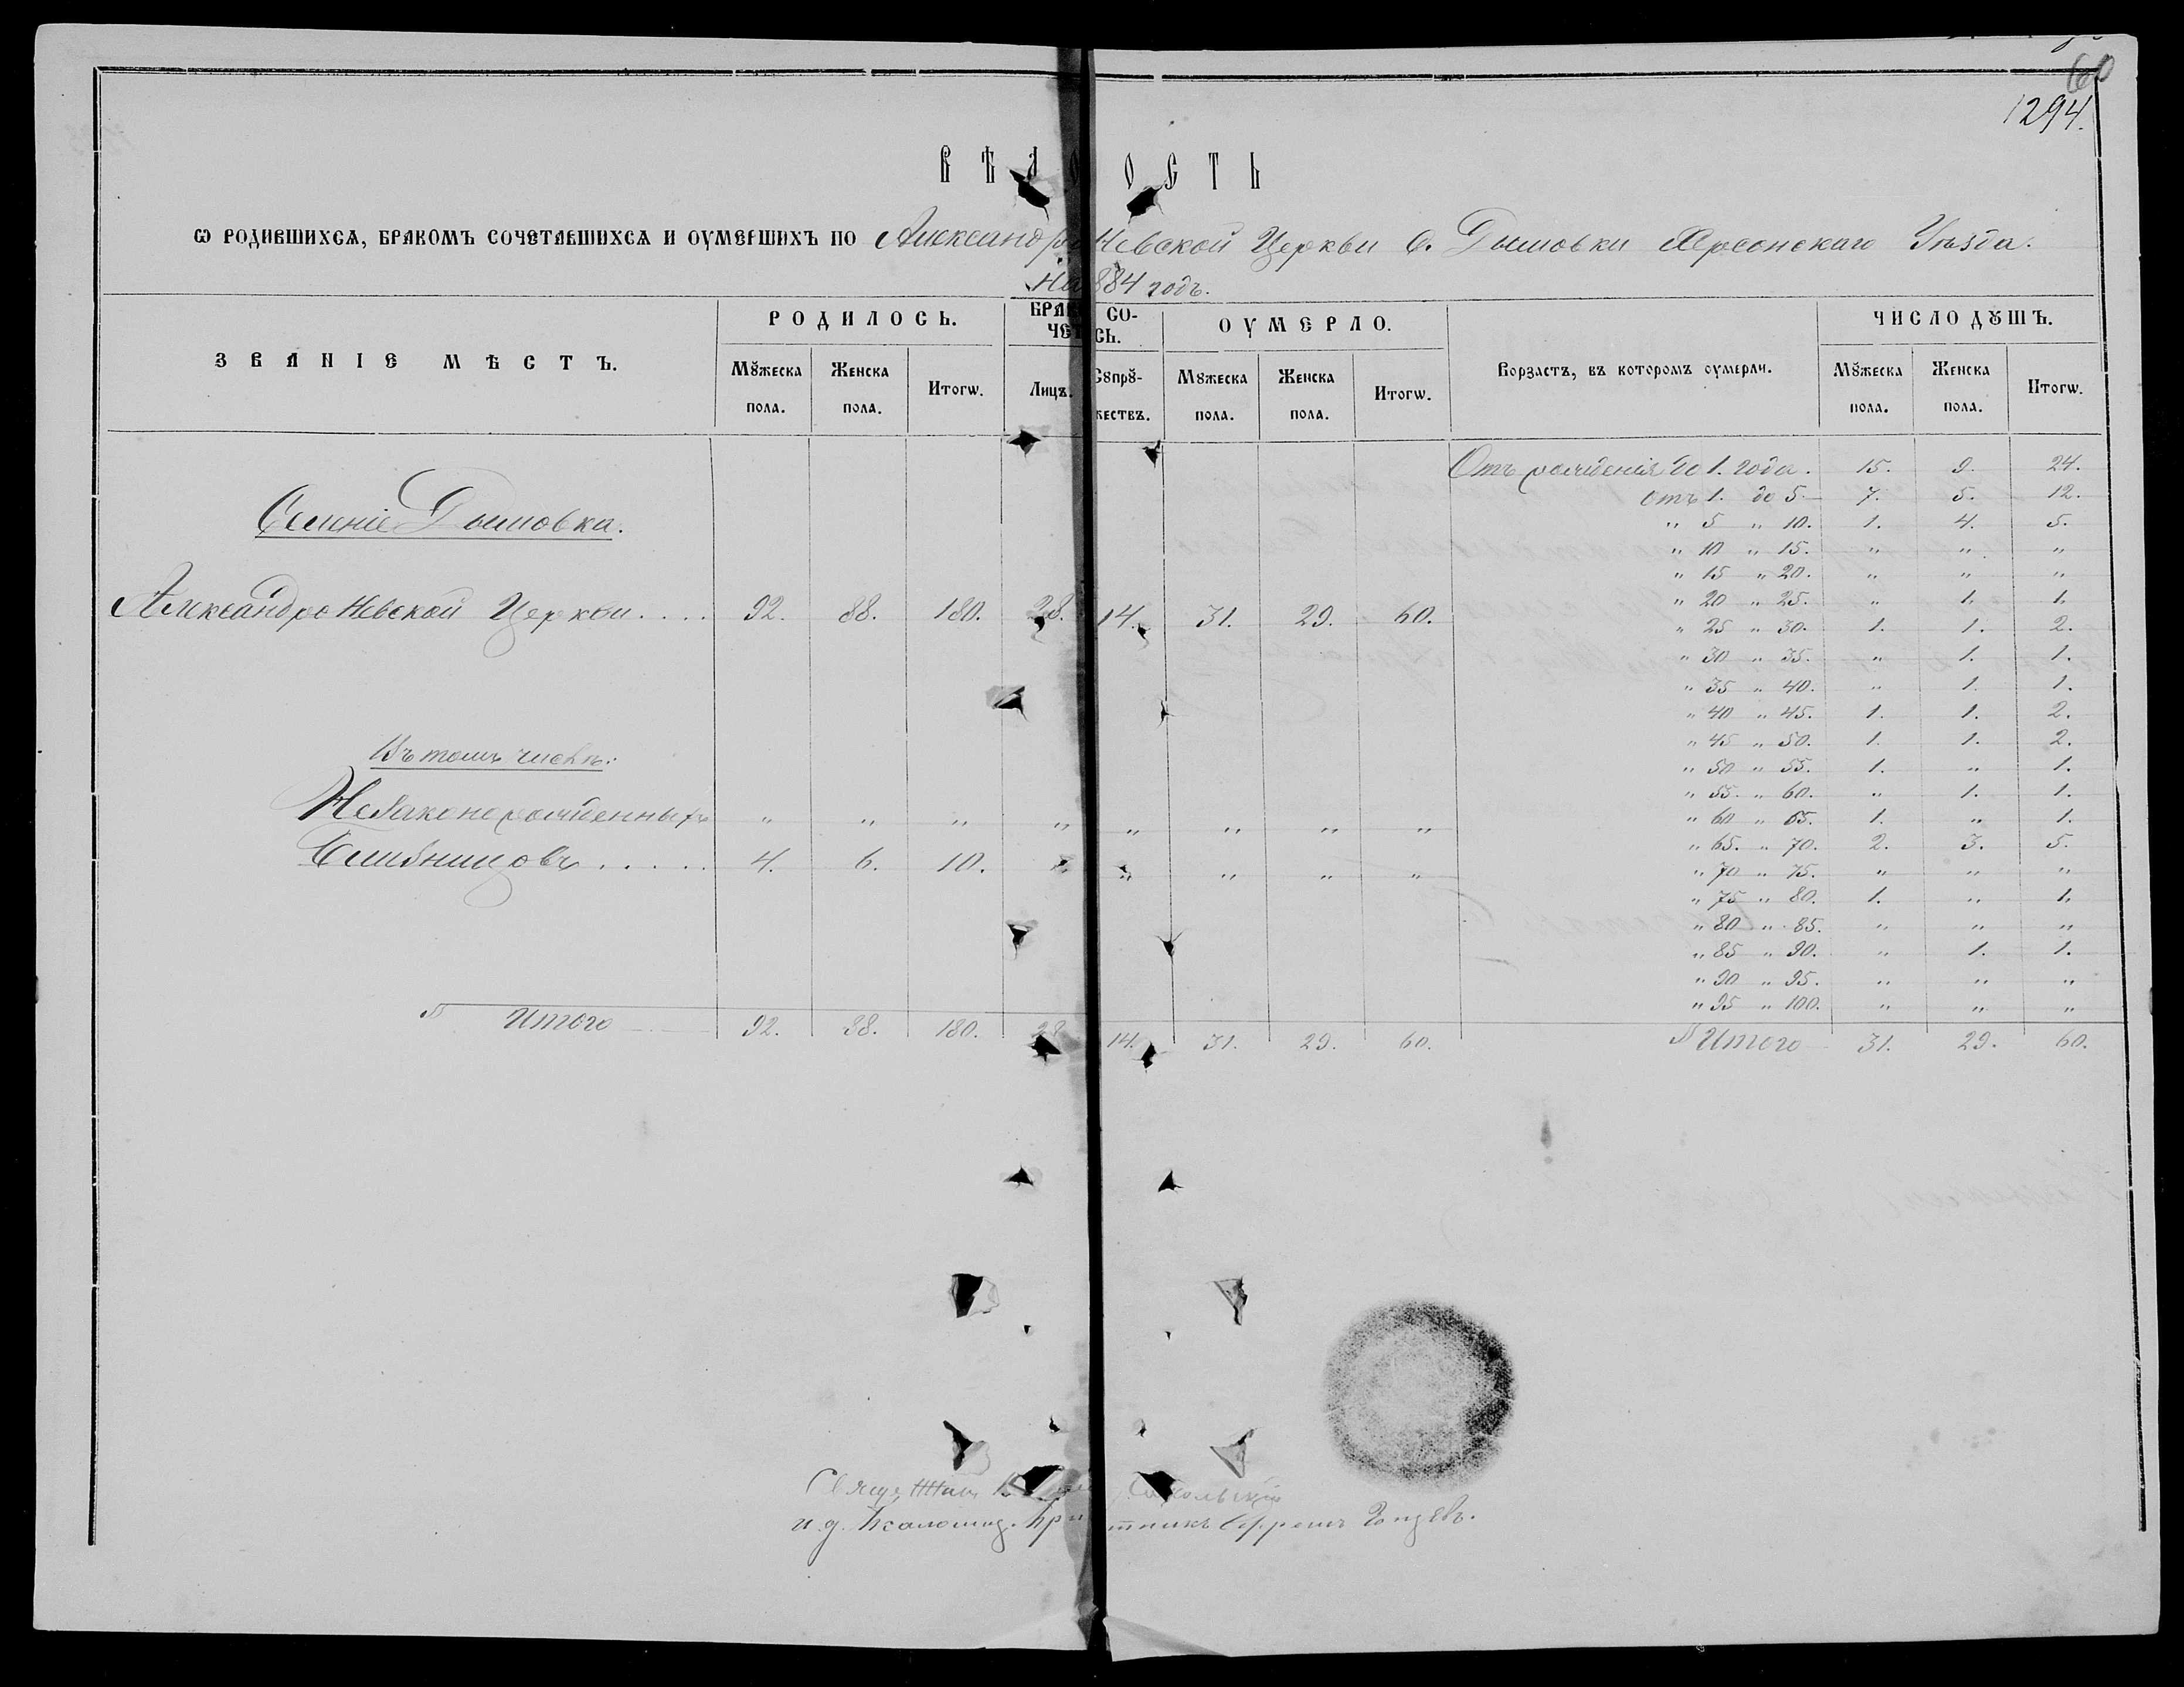 60
1294.
ВѢДОСТЬ
Ѡ РОДИВШИХСѦ, БРАКОМЪ СОЧЕТАВШИХСѦ И ОУМЕРШИХЪ ПО Александро Невской Церкви С. Херсонскаго Уѣзда.
На 884 годъ.
ЗВАНІЕ МѢСТЪ. РОДИЛОСЬ. БРАК СО- ОУМЕРЛО. Возрастъ, въ которомъ оумерли. ЧИСЛО ДꙊШЪ.
ЧЕТ СЬ.
Мꙋжеска пола. Женска пола. Итогѡ. Лицъ. Сꙋпрꙋ-жествъ. Мꙋжеска пола. Женска пола. Итогѡ. Мꙋжеска пола. Женска пола. Итогѡ.
Отъ рожденія до 1. года. 15. 9. 24.
отъ 1. до 5. 7. 5. 12.
Селеніе
„ 5 „ 10. 1. 4. 5.
„ 10 „ 15. „ „ „
„ 15 „ 20. „ „ „
„ 20 „ 25. „ 1. 1.
Александро Невской Церкви.... 92. 88. 180. 28. 14. 31. 29. 60.
„ 25 „ 30. 1. 1. 2.
„ 30 „ 35. „ 1. 1.
„ 35 „ 40. „ 1. 1.
„ 40 „ 45. 1. 1. 2.
„ 45 „ 50. 1. 1. 2.
Въ томъ числѣ:
„ 50 „ 55. 1. „ 1.
„ 55. „ 60. „ 1. 1.
Незаконорожденныхъ „ „ „ „ „ „ „ „
„ 60 „ 65. 1. „ 1.
„ 65. „ 70. 2. 3. 5.
Близницовъ..... 4. 6. 10. „ „ „ „
„ 70 „ 75. „ „ „
„ 75 „ 80. 1. „ 1.
„ 80 „ 85. „ „ „
„ 85 „ 90. „ 1. 1.
„ 90 „ 95. „ „ „
„ 95 „ 100. „ „ „
Итого 92. 88. 180. 28 14. 31. 29. 60. Итого 31. 29. 60.
Сокольскій
и. д. Псаломщ. Ефремъ